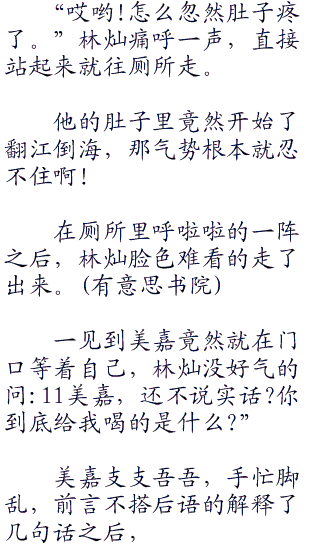 “哎哟!怎么忽然肚子疼
了。”林灿痛呼一声，直接
站起来就往厕所走。
他的肚子里竟然开始了
翻江倒海，那气势根本就忍
不住啊!
在厕所里呼啦啦的一阵
之后，林灿脸色难看的走了
出来。(有意思书院)
一见到美嘉竟然就在门
口等着自己，林灿没好气的
问:11美嘉，还不说实话?你
到底给我喝的是什么?”
美嘉支支吾吾，手忙脚
乱，前言不搭后语的解释了
几句话之后，